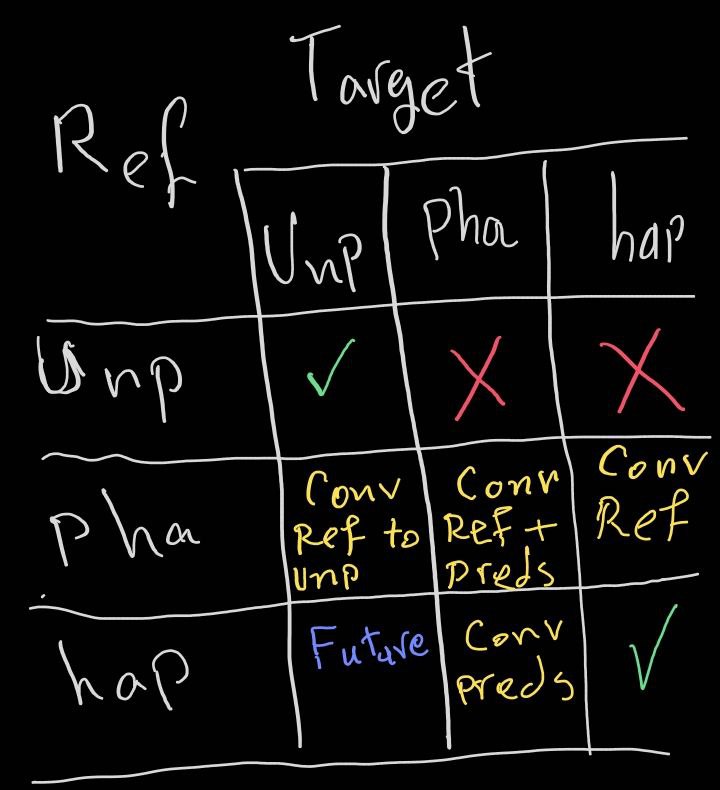 Target
Ref
Unp Pha hap
Unp ✓ X X
Pha Conv Ref to Unp Conv Ref + Preds Conv Ref
hap Future Conv preds ✓